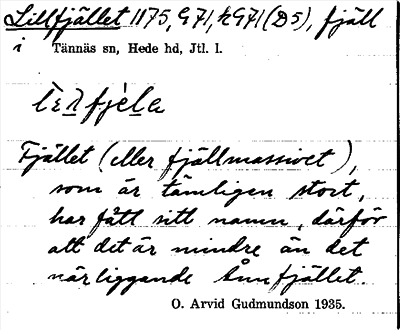 Lillfjället 1175, G71, kG71 (D5), fjäll
i Tännäs sn, Hede hd, Jtl. l.
Fjället (eller fjällmassivet),
som är tämligen stort,
har fått sitt namn, därför
att det är mindre än det
närliggande Ånnfjället.
O. Arvid Gudmundson 1935.